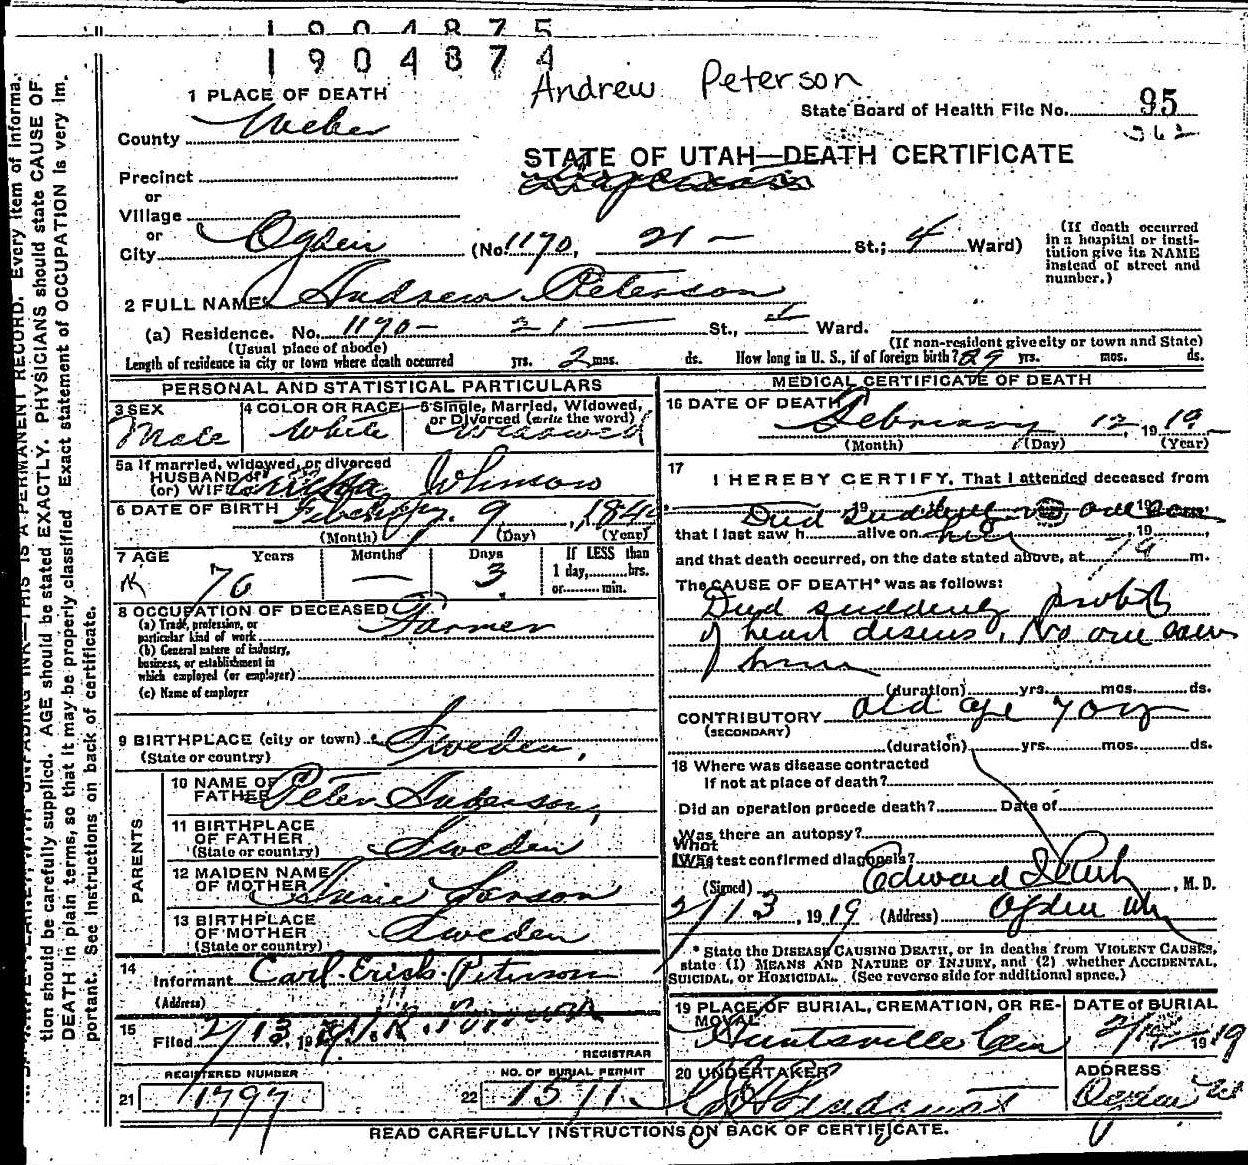 1904875
1904874
Andrew Peterson
1 PLACE OF DEATH
State Board of Health File No. 95
County Weber
362
STATE OF UTAH—DEATH CERTIFICATE
Precinct
or
Village
or
City Ogden (No. 1170, 21 — St.; 4 Ward)
(If death occurred in a hospital or institution give its NAME instead of street and number.)
2 FULL NAME Andrew Peterson
(a) Residence. No. 1170 — 21 — St., Ward.
(Usual place of abode)
(If non-resident give city or town and State)
Length of residence in city or town where death occurred yrs. 2 mos. ds. How long in U. S., if of foreign birth? 29 yrs. mos. ds.
PERSONAL AND STATISTICAL PARTICULARS
3 SEX
Male
4 COLOR OR RACE
White
5 Single, Married, Widowed, or Divorced (write the word)
Widowed
5a If married, widowed, or divorced
HUSBAND of
(or) WIFE Johnson
6 DATE OF BIRTH 9, 184
(Month) (Day) (Year)
7 AGE Years Months Days If LESS than
1 day, hrs.
or min.
70 — 3
8 OCCUPATION OF DECEASED
(a) Trade, profession, or particular kind of work Farmer
(b) General nature of industry, business, or establishment in which employed (or employer)
(c) Name of employer
9 BIRTHPLACE (city or town) Sweden,
(State or country)
PARENTS
10 NAME OF FATHER Peter Anderson,
11 BIRTHPLACE OF FATHER Sweden
(State or country)
12 MAIDEN NAME OF MOTHER Larson
13 BIRTHPLACE OF MOTHER Sweden
(State or country)
14
Informant Carl Erick Peterson
(Address)
15
Filed 2/13, 19
REGISTRAR
REGISTERED NUMBER
21 1797
NO. OF BURIAL PERMIT
22 1571
MEDICAL CERTIFICATE OF DEATH
16 DATE OF DEATH
February 12, 1919
(Month) (Day) (Year)
17
I HEREBY CERTIFY, That I attended deceased from
Died suddenly no one saw
that I last saw h alive on him 19
and that death occurred, on the date stated above, at 7 a m.
The CAUSE OF DEATH* was as follows:
Died suddenly probab
of heart disease, No one saw
him
(duration) yrs. mos. ds.
CONTRIBUTORY old age 70 yr
(SECONDARY)
(duration) yrs. mos. ds.
18 Where was disease contracted
If not at place of death?
Did an operation precede death? Date of
Was there an autopsy?
What test confirmed diagnosis?
(Signed) Edward I , M. D.
2/13, 1919 (Address) Ogden
* State the DISEASE CAUSING DEATH, or in deaths from VIOLENT CAUSES, state (1) MEANS AND NATURE OF INJURY, and (2) whether ACCIDENTAL, SUICIDAL, or HOMICIDAL. (See reverse side for additional space.)
19 PLACE OF BURIAL, CREMATION, OR REMOVAL
Huntsville Cem
DATE of BURIAL
1919
20 UNDERTAKER
ADDRESS
Ogden
READ CAREFULLY INSTRUCTIONS ON BACK OF CERTIFICATE.
tion should be carefully supplied. AGE should be stated EXACTLY. PHYSICIANS should state CAUSE OF
DEATH in plain terms, so that it may be properly classified. Exact statement of OCCUPATION is very im-
portant. See Instructions on back of certificate.